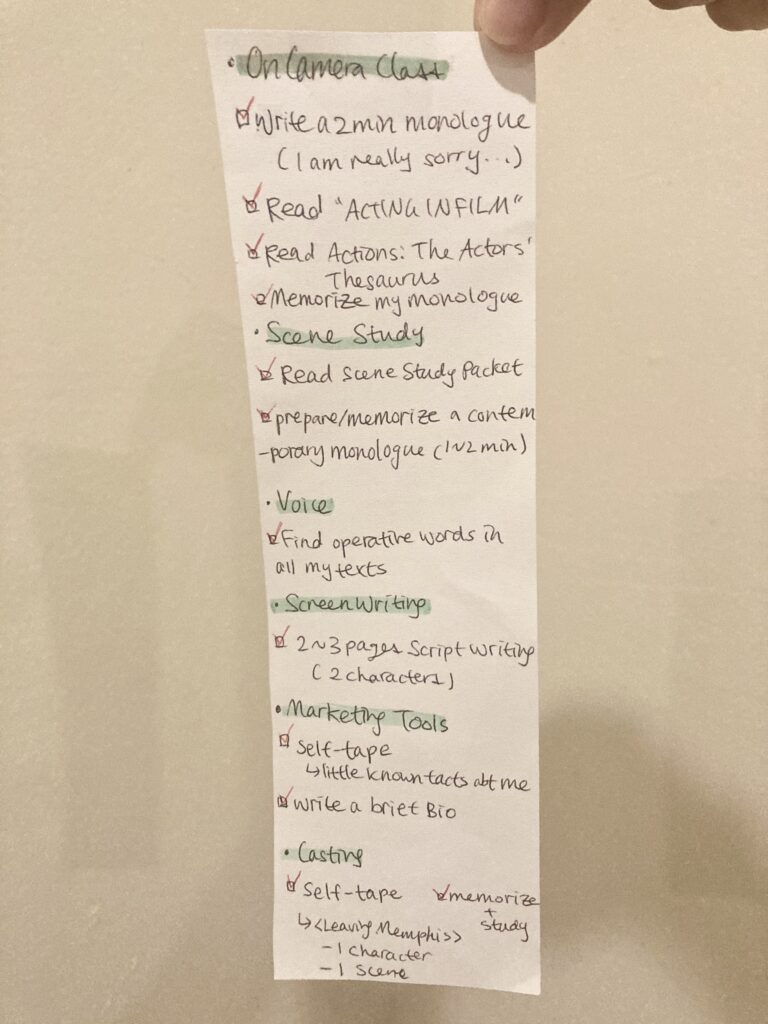 • On Camera Class
☑ Write a 2 min monologue
(I am really sorry...)
☑ Read "ACTING IN FILM"
☑ Read Actions: The Actors'
Thesaurus
☑ Memorize my monologue
• Scene Study
☑ Read Scene Study Packet
☑ prepare/memorize a contem
-porary monologue (1~2 min)
• Voice
☑ Find operative words in
all my texts
• ScreenWriting
☑ 2~3 pages Script writing
(2 characters)
• Marketing Tools
☑ Self-tape
↳ little known facts abt me
☑ write a brief Bio
• Casting
☑ Self-tape ☑ memorize
+
study
↳ <Leaving Memphis>
- 1 character
- 1 scene